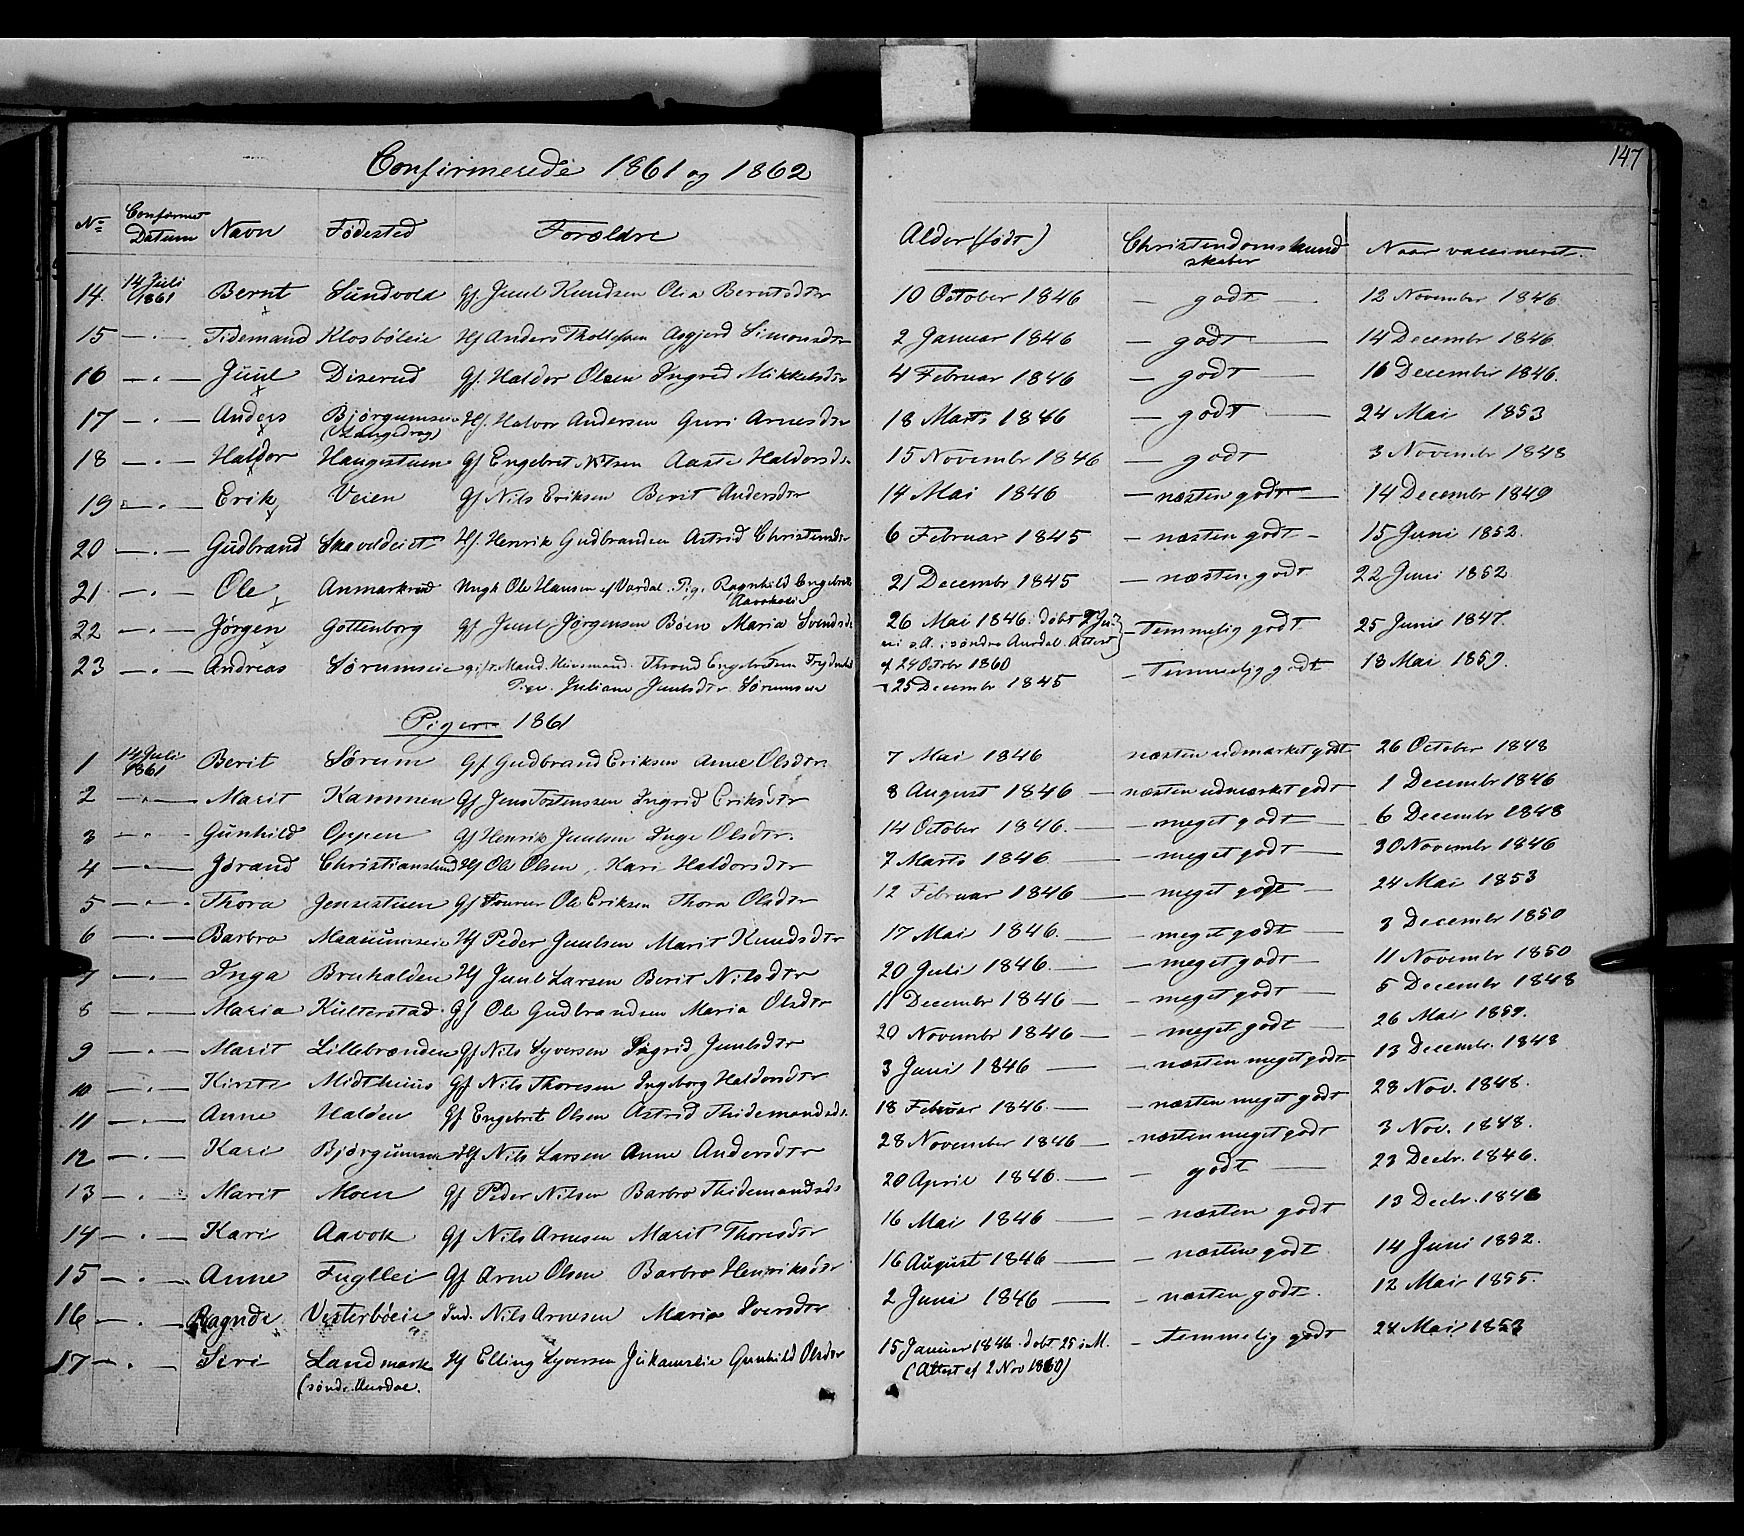 147
Confirmerede 1861 og 1862
No Confirmat Datum Navn Fødested Forældre Alder (født) Christendomskundskaber Naar vaccineret.
14 14 Juli 1861 Bernt Sundvold Gf. Juul Knudsen Olia Berntsdtr 10 October 1846 — godt — 12 November 1846
15 — " — Tidemand Klosbøleie Hf Anders Thollefsen Asgjerd Simonsdtr 2 Januar 1846 — godt — 14 Decembr 1846.
16 — " — Juul Diserud Gf. Haldor Olsen Ingrid Mikkelsdtr 4 Februar 1846 — godt — 16 December 1846.
17 — " — Anders Bjørgumseie Hf. Halvor Andersen Guri Arnesdtr 18 Marts 1846 — godt — 24 Mai 1853
18 — " — Haldor Haugestuen Gf Engebret Nilsen Aaste Haldorsd. 15 Novembr 1846 — godt 3 Novembr 1848
19 — " — Erik Veien Gf Nils Eriksen Berit Andersdtr 14 Mai 1846 — næsten godt — 14 Decembr 1849
20 — " — Gudbrand Hf. Henrik Gudbrandsen Astrid Christensdr 6 Februar 1845 — næsten godt — 15 Juni 1852.
21 — " — Ole Anmarkrud Ungk Ole Hansen af Vardal. Pig. Ragnhild Engebrits 21 Decembr 1845 — næsten godt 22 Juni 1852
22 — " — Jørgen Gottenborg Gf Juul Jørgensen Bøen Maria Svendsd 26 Mai 1846. døbt 7 Ju- — Temmelig godt 25 Juni 1847.
ni s.A. i søndre Aurdal Attest
af 24 Octbr 1860
23 — " — Andreas Sørumseie gift Mand. Huusmand. Thrond Engebretsen 25 Decembr 1845 — Temmelig godt 18 Mai 1859.
Pige. Juliane Juulsdtr. Sørumseie
Piger 1861
1 14 Juli 1861 Berit Sørum Gf Gudbrand Eriksen Anne Olsdtr. 7 Mai 1846 næsten udmærket godt 26 October 1848
2 — " — Marit Kammen Gf Jens Tostenssen Ingrid Eriksdtr 8 August 1846 — næsten udmærket godt 1 Decembr 1846
3 — " — Gunhild Oppen Gf Henrik Juulsen Inge Olsdtr. 14 October 1846. — meget godt — 6 Decembr 1848
4 — " — Jørand Christianslund Hf Ole Olsen, Kari Haldorsdtr 7 Marts 1846 — meget godt — 30 Novembr 1846
5 — " — Thora Jensestuen Gf Ole Eriksen Thora Olsdtr 12 Februar 1846 — meget godt — 24 Mai 1853
6 — " — Barbro Maaumseie Hf Peder Juulsen Marit Knudsdtr 17 Mai 1846. — meget godt — 3 Decembr 1850
7 — " — Inga Bruhalden Hf Juul Larsen Berit Nilsdtr 20 Juli 1846. — meget godt — 11 November 1850
8 — " — Maria Kulterstad Gf Ole Gudbrandsen Maria Olsdtr 11 Decembr 1846 — meget godt — 5 Decembr 1848
9 — " — Marit Lillebrænden Gf Nils Syversen Sigrid Juulsdtr 20 Novembr 1846 — meget godt — 26 Mai 1859.
10 — " — Kirsti Midthuus Gf Nils Thoresen Ingeborg Haldorsdtr 3 Juni 1846 — næsten meget godt 13 Decembr. 1848
11 — " — Anne Halden Gf Engebret Olsen Astrid Thidemandsd. 18 Februar 1846. — næsten meget godt 28 Nov. 1848.
12 — " — Kari Bjørgumseie Hf Nils Larsen Anne Andersdtr 28 November 1846 — næsten meget godt 3 Nov. 1848.
13 — " — Marit Moen Gf Peder Nilsen Barbro Thidemandsds 20 April 1846. — godt — 23 Decbr. 1846.
14 — " — Kari Aavok Gf Nils Arnesen Marit Thoresdtr 16 Mai 1846 — næsten godt 13 Decbr. 1848
15 — " — Anne Fugllei Gf Arne Olsen Barbro Henriksdtr 16 August 1846 — næsten godt 14 Juni 1852.
16 — " — Ragndi Vesterbøeie Ind. Nils Arnesen Maria Iversdtr 2 Juni 1846 — næsten godt. 12 Mai 1855.
17 — " — Siri Landmark Hf Elling Syversen Gunhild Olsdtr 15 Januar 1846. døbt 25 s.M. — temmelig godt 24 Mai 1853
(søndr. Aurdal. (Attest af 2 Nov 1860)